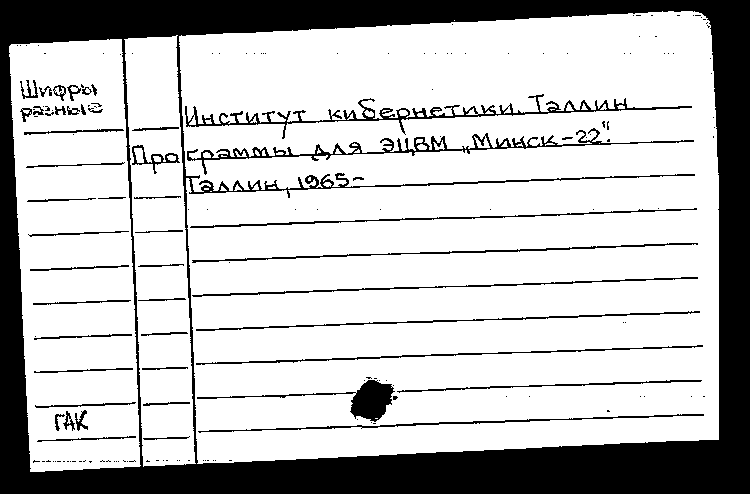 Шифры
разные
Институт кибернетики. Таллин.
Программы для ЭЦВМ „Минск-22".
Таллин, 1965-
ГАК